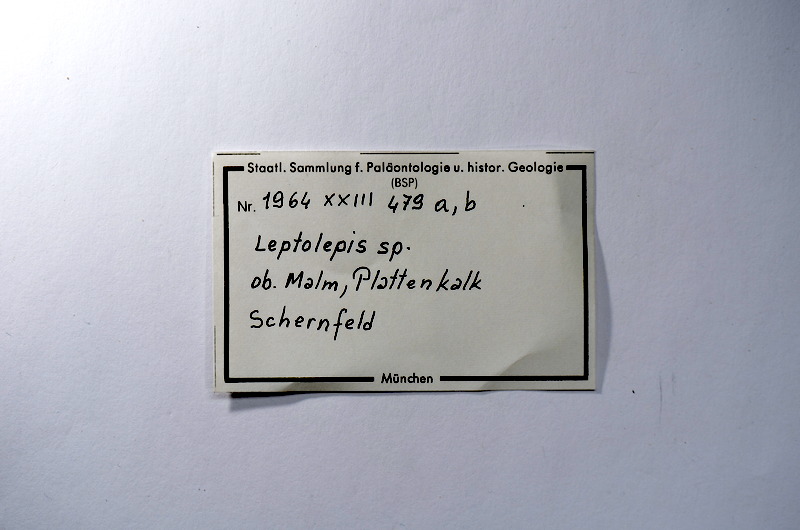 Staatl. Sammlung f. Paläontologie u. histor. Geologie
(BSP)
Nr. 1964 XXIII 479 a, b
Leptolepis sp.
ob. Malm, Plattenkalk
Schernfeld
München